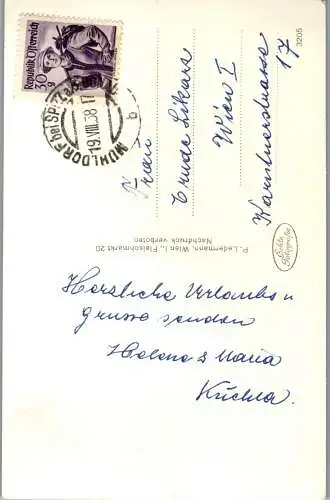 Republik Österreich
30 g
MÜHLDORF bei SPITZ
19.VIII.58.17
b
3205
Frau
Trude Likars
Wien I
Kärntnerstrasse
17
P. Ledermann, Wien I., Fleischmarkt 20
Nachdruck verboten
Echte
Fotografie
Herzliche Urlaubs
grüsse senden
Helene & Maria
Küchla.